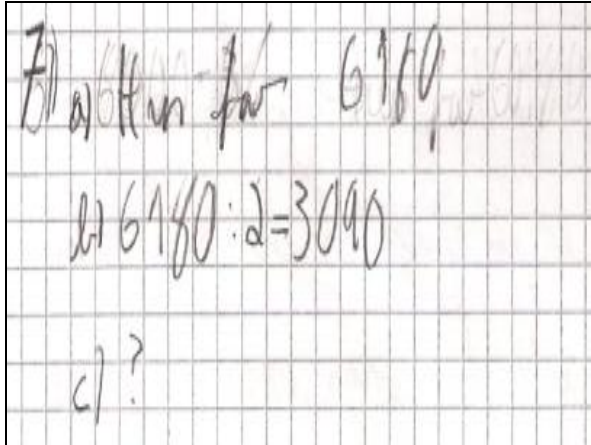 7)
a) Hun får 6180
b) 6180 : 2 = 3090
c) ?